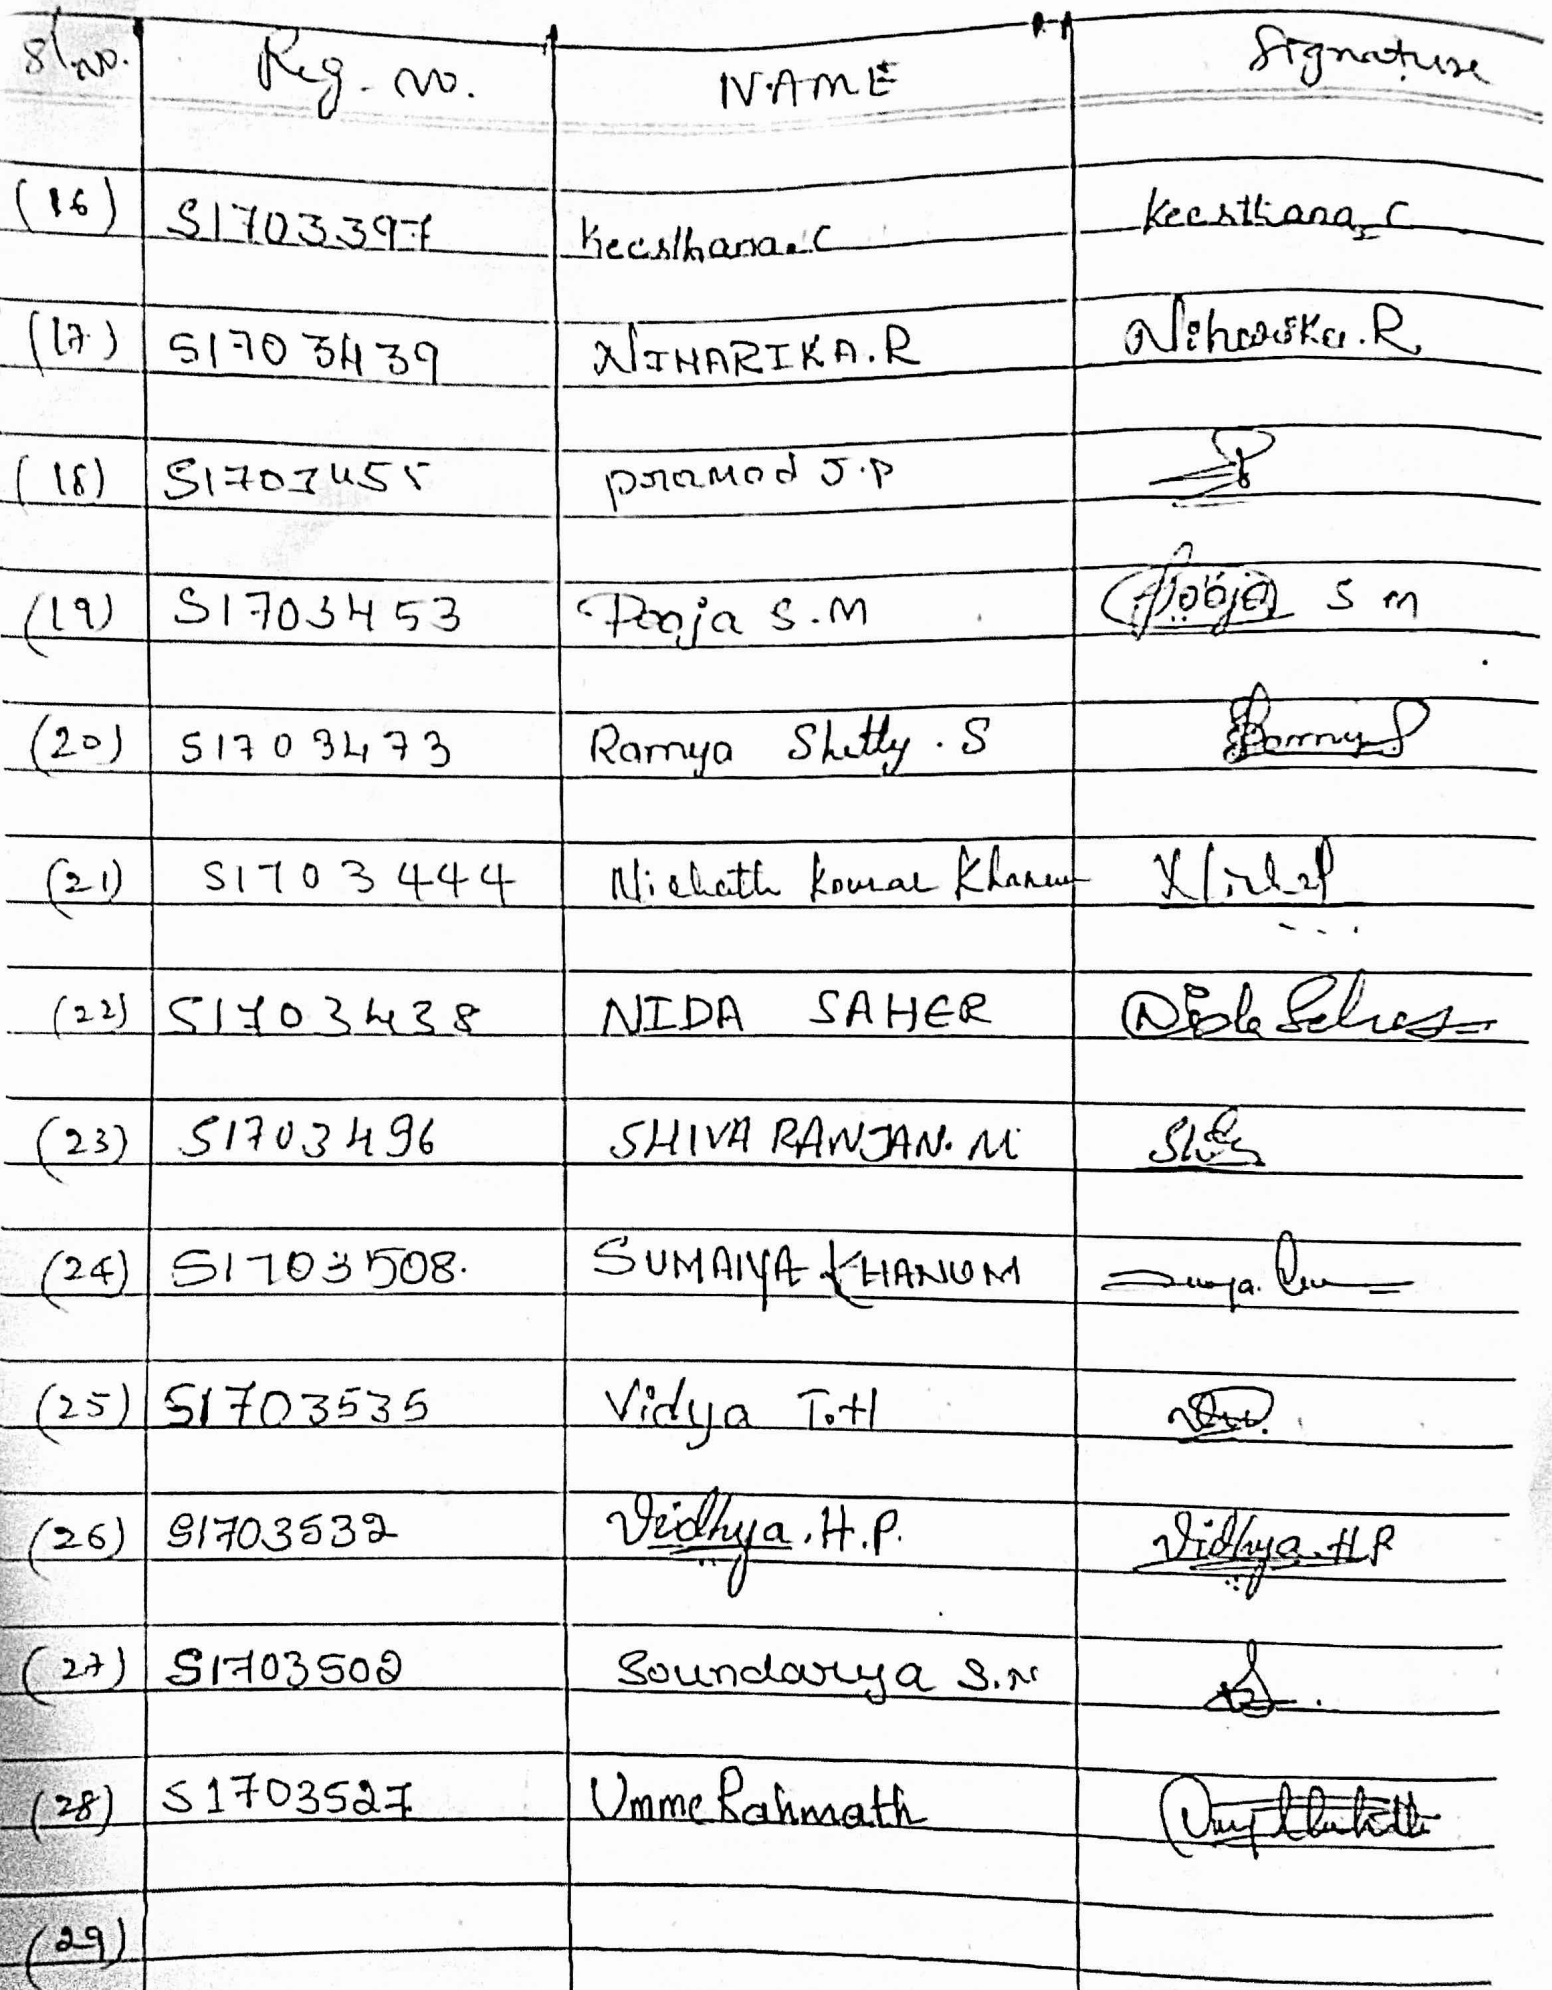 Sl.no. Reg. no. NAME Signature
(16) S1703397 Keerthana.C Keerthana.C
(17) S1703439 NIHARIKA.R Niharika.R
(18) S1703455 pramod J.P
(19) S1703453 Pooja S.M Pooja S M
(20) S1703473 Ramya Shetty . S Ramya S
(21) S1703444 Nishath Kousar Khanum
(22) S1703438 NIDA SAHER Nida Saher
(23) S1703496 SHIVA RANJAN. M
(24) S1703508. SUMAIYA KHANUM
(25) S1703535 Vidya T.H
(26) S1703532 Vidhya.H.P. Vidhya.H.P
(27) S1703502 Soundarya S.N
(28) S1703527 Umme Rahmath
(29)